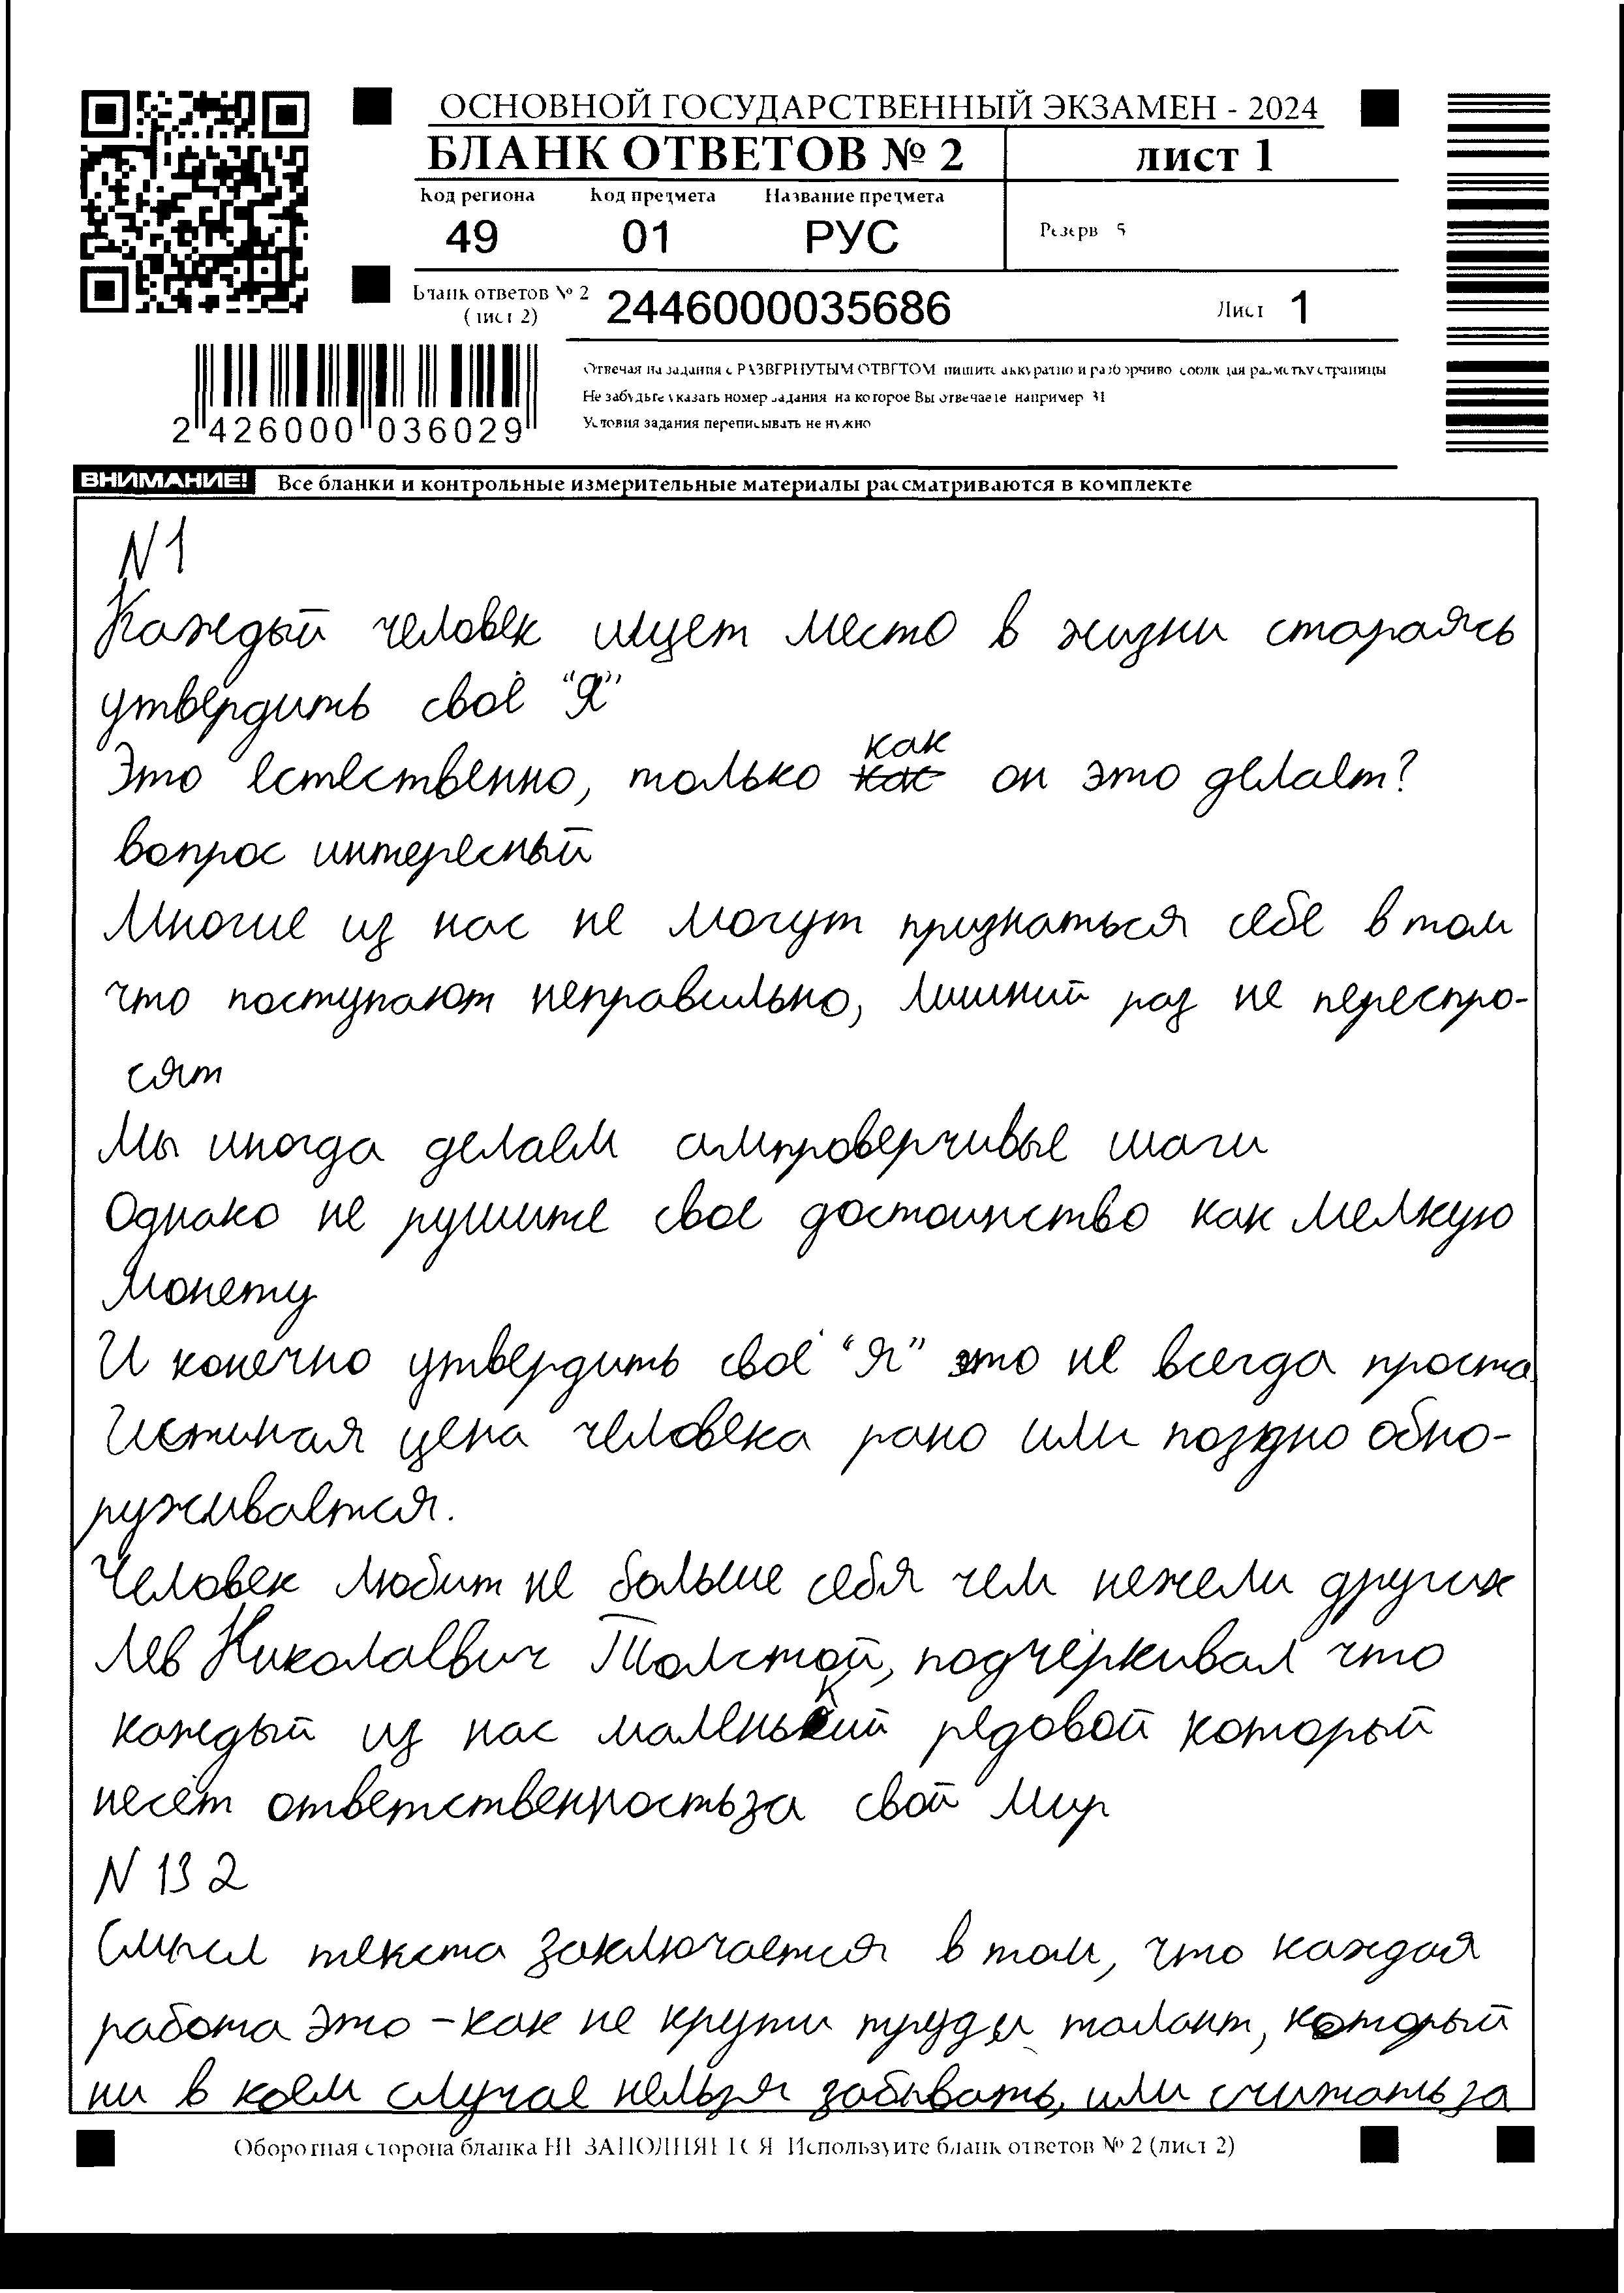 ОСНОВНОЙ ГОСУДАРСТВЕННЫЙ ЭКЗАМЕН - 2024
БЛАНК ОТВЕТОВ № 2
ЛИСТ 1
Код региона Код предмета Название предмета
49 01 РУС
Резерв 5
Бланк ответов № 2
(лист 2)
2446000035686
Лист 1
Отвечая на задания с РАЗВЕРНУТЫМ ОТВЕТОМ пишите аккуратно и разборчиво соблюдая разметку страницы
Не забудьте указать номер задания на которое Вы отвечаете например 31
Условия задания переписывать не нужно
2 426000 036029
ВНИМАНИЕ! Все бланки и контрольные измерительные материалы рассматриваются в комплекте
N1
Каждый человек ищет место в жизни стараясь
утвердить своё "Я"
как
Это естественно, только кас он это делает?
вопрос интересный
Многие из нас не могут признаться себе в том
что поступают неправильно, лишний раз не переспро-
сят
Мы иногда делаем ампроверчивые шаги
Однако не рушите свое достоинство как мелкую
монету
И конечно утвердить своё "Я" это не всегда проста
Истиная цена человека рано или поздно обно-
руживается.
Человек любит не больше себя чем нежели других
Лев Николаевич Толстой, подчёркивал что
каждый из нас маленький редовой который
несёт ответственностьза свой мир
N 13 2
Смысл текста заключается в том, что каждая
работа это - как не крути труд и талант, который
ни в коем случае нельзя забывать, или считать за
Оборотная сторона бланка НЕ ЗАПОЛНЯЕТСЯ Используйте бланк ответов № 2 (лист 2)